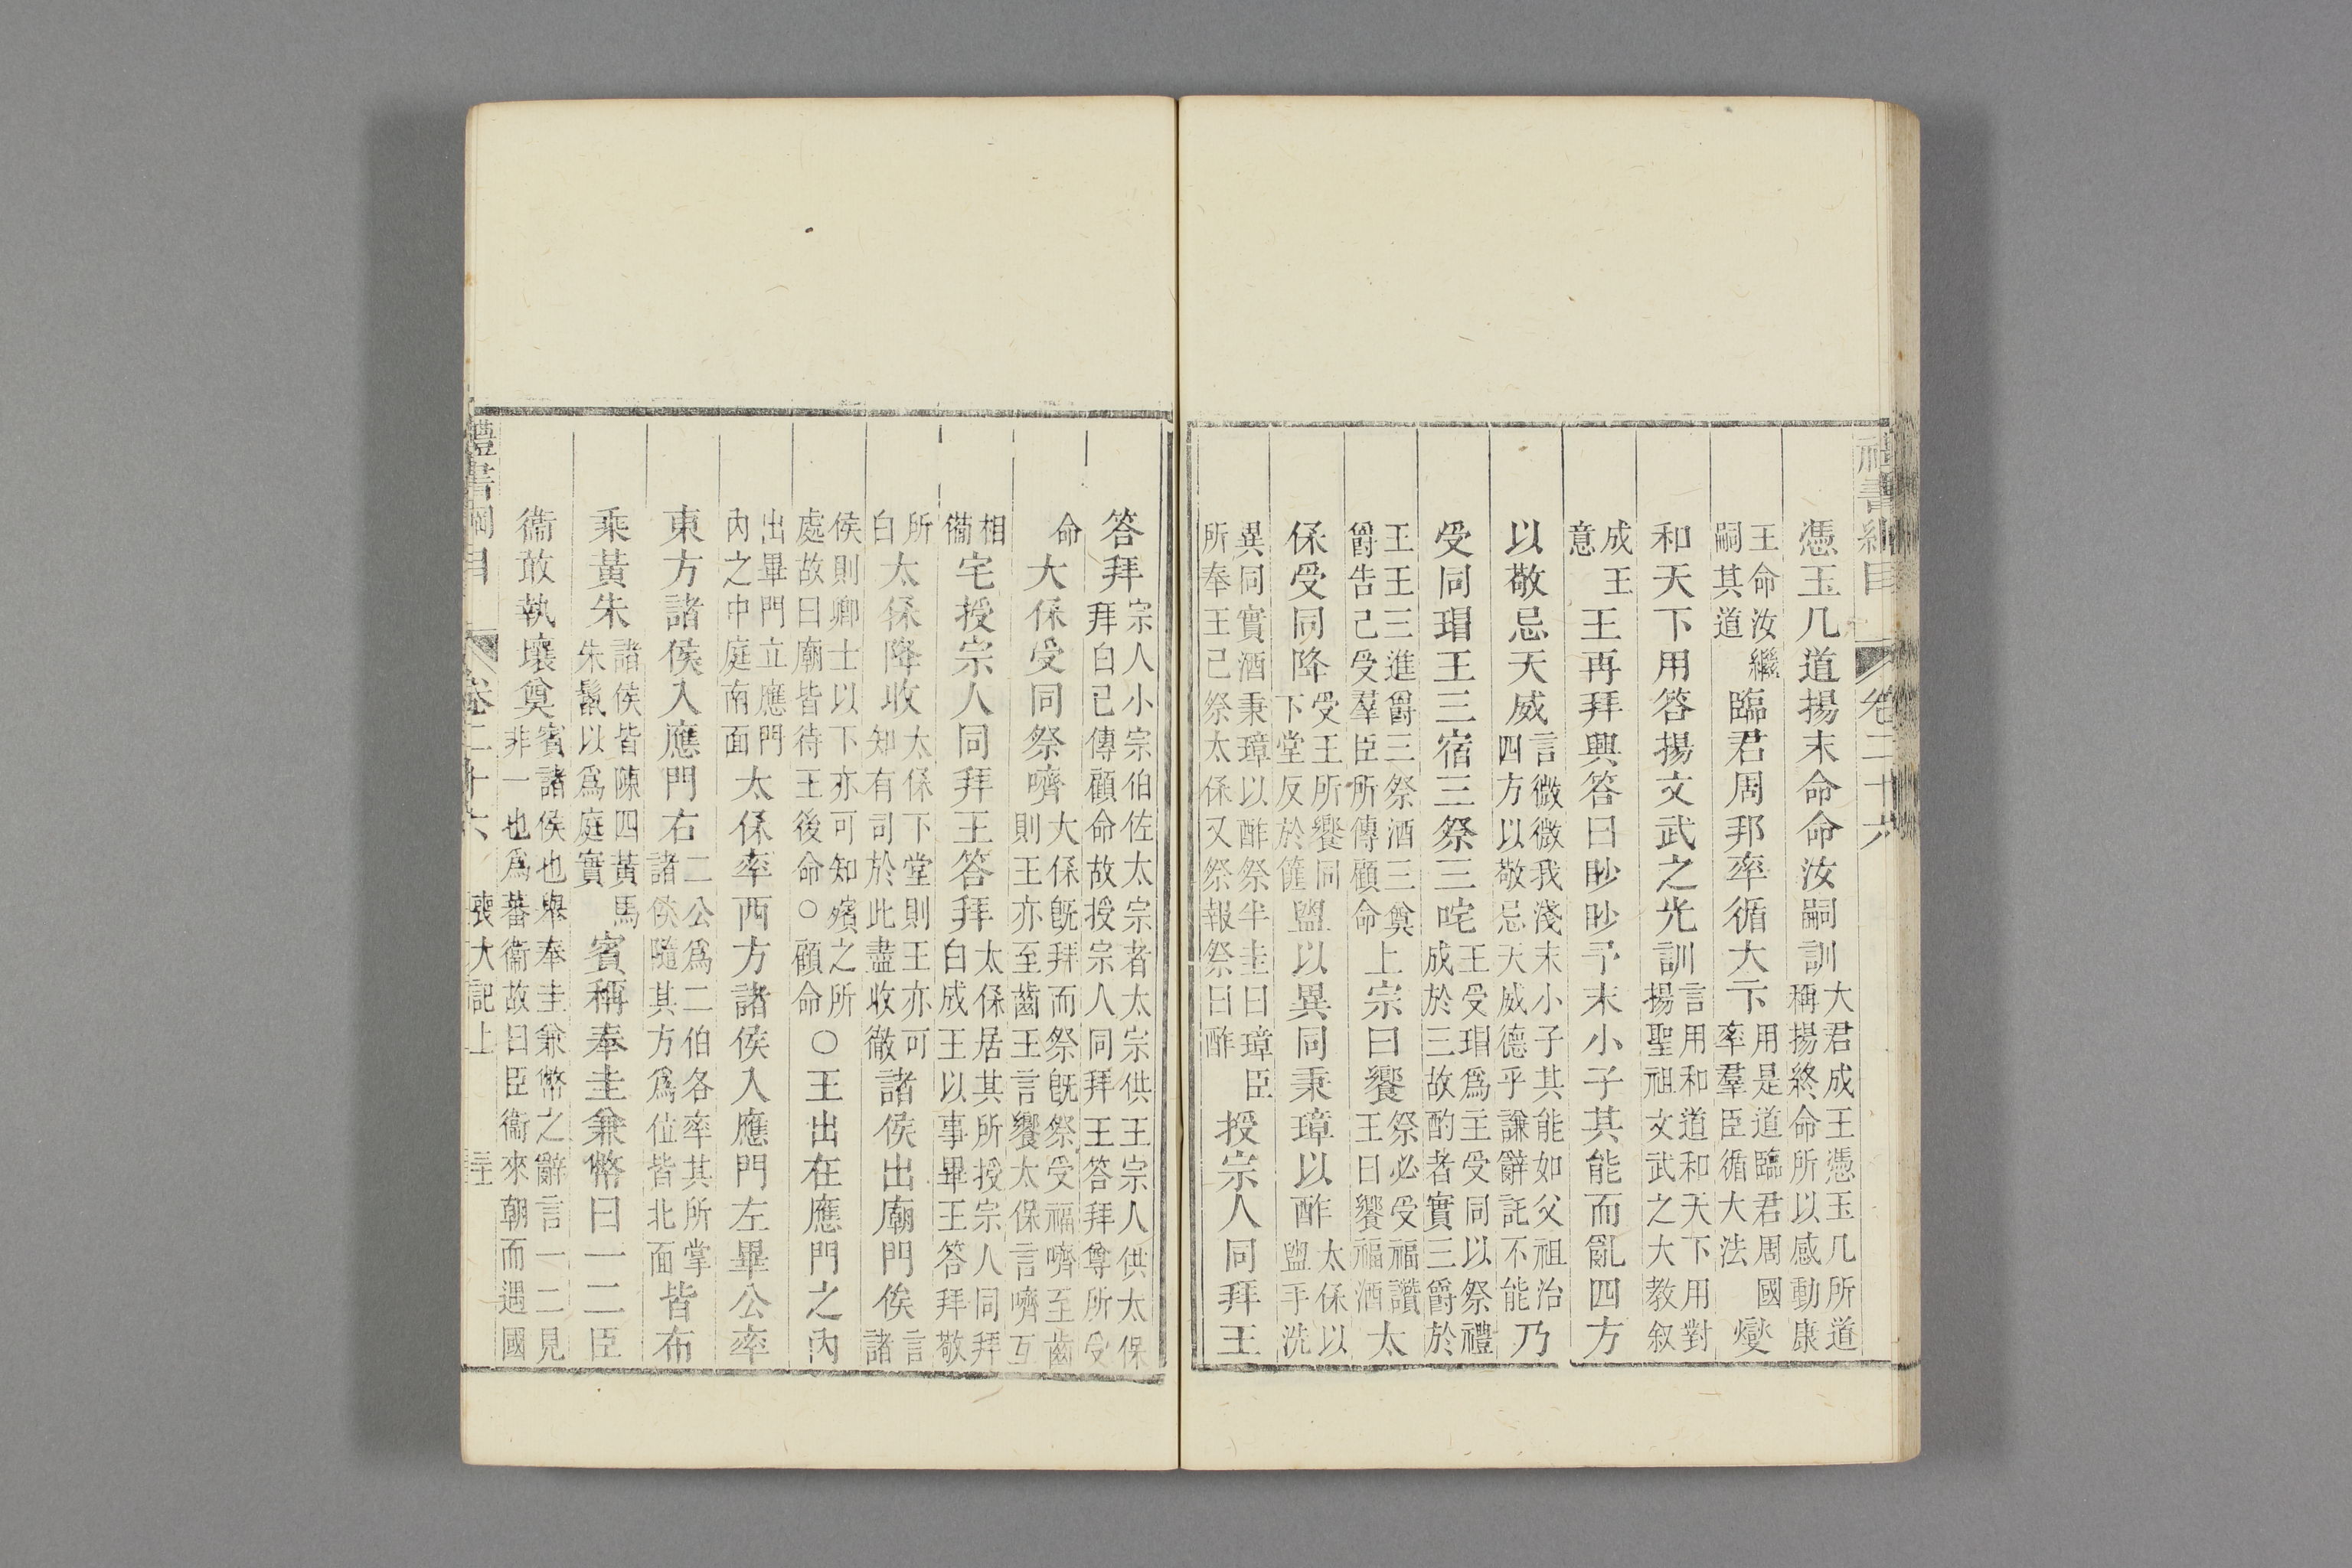 禮書綱目 卷二十六
憑玉几道揚末命命汝嗣訓大君成王憑玉几所道稱揚終命所以感動康
王命汝繼嗣其道臨君周邦率循大卞用是道臨君周國率羣臣循大法燮
和天下用答揚文武之光訓言用和道和天下用對揚聖祖文武之大教叙
成王意王再拜興答曰眇眇予末小子其能而亂四方
以敬忌天威言微微我淺末小子其能如父祖治四方以敬忌天威德乎謙辭託不能乃
受同瑁王三宿三祭三咤王受瑁爲主受同以祭禮成於三故酌者實三爵於
王王三進爵三祭酒三奠爵告己受羣臣所傳顧命上宗曰饗祭必受福讚王曰饗福酒太
保受同降受王所饗同下堂反於篚盥以異同秉璋以酢太保以盥手洗
異同實酒秉璋以酢祭半圭曰璋臣所奉王己祭太保又祭報祭曰酢授宗人同拜王
答拜宗人小宗伯佐太宗者太宗供王宗人供太保拜白已傳顧命故授宗人同拜王答拜尊所受
命大保受同祭嚌大保旣拜而祭旣祭受福嚌至齒則王亦至齒王言饗太保言嚌互
相備宅授宗人同拜王答拜太保居其所授宗人同拜白成王以事畢王答拜敬
所白太保降收太保下堂則王亦可知有司於此盡收徹諸侯出廟門俟言諸
侯則卿士以下亦可知殯之所處故曰廟皆待王後命○顧命○王出在應門之內
出畢門立應門內之中庭南面太保率西方諸侯入應門左畢公率
東方諸侯入應門右二公爲二伯各率其所掌諸侯隨其方爲位皆北面皆布
乘黃朱諸侯皆陳四黃馬朱鬣以爲庭實賓稱奉圭兼幣曰一二臣
衞敢執壤奠賓諸侯也舉奉圭兼幣之辭言一二見非一也爲蕃衞故曰臣衞來朝而遇國
禮書綱目 卷二十六 喪大記上